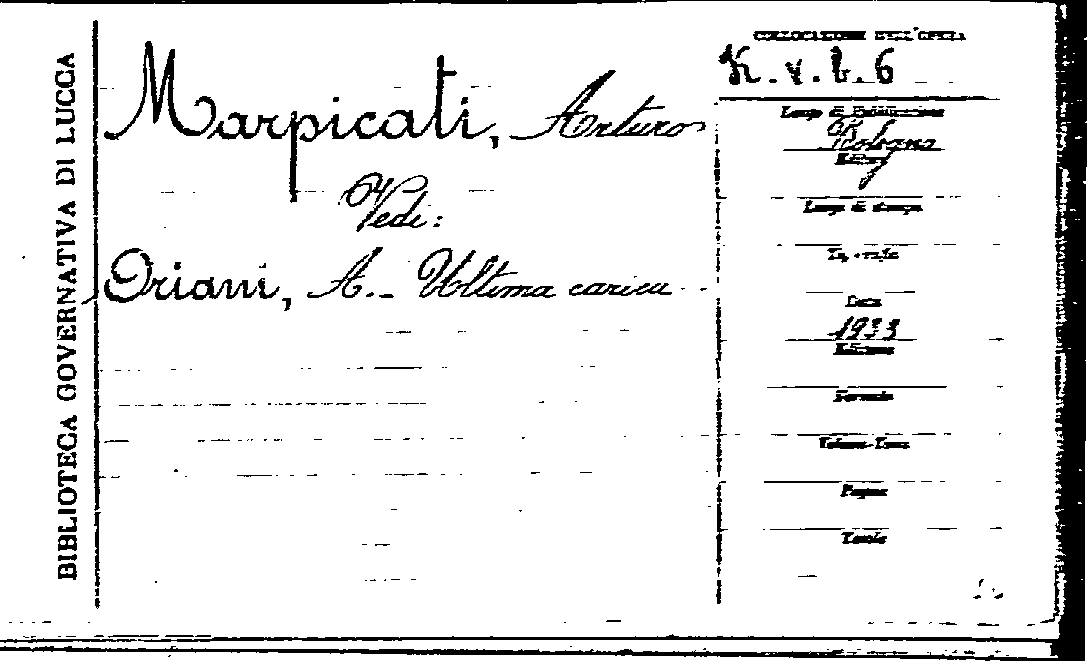 BIBLIOTECA GOVERNATIVA DI LUCCA
Marpicati, Arturo
Vedi:
Oriani, A. - Ultima carica
COLLOCAZIONE DELL'OPERA
K. v. b. 6
Luogo di Pubblicazione
Bologna
Editore
Luogo di stampa
Tipografia
Data
1933
Edizione
Formato
Pagine
Tavole